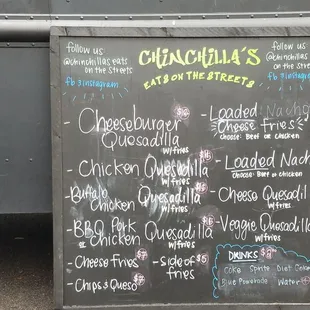 follow us
@chinchillas eats
on the streets
fb & instagram
CHINCHILLA'S
EATS ON THE STREETS
follow us
@chinchillas
on the stre
fb & instagr
- Cheeseburger
Quesadilla
w/fries
- Chicken Quesadilla
w/fries
- Buffalo
Chicken Quesadilla
w/fries
- BBQ Pork
or Chicken Quesadilla
w/fries
- Cheese Fries $7
- Side of $5
fries
- Chips & Queso $7
- Loaded Nacho
Cheese fries
choose: Beef or chicken
- Loaded Nach
choose: Beef or chicken
- Cheese Quesadil
w/fries
- Veggie Quesadilla
w/fries
DRINKS
Coke Sprite Diet Coke
Blue Powerade Water